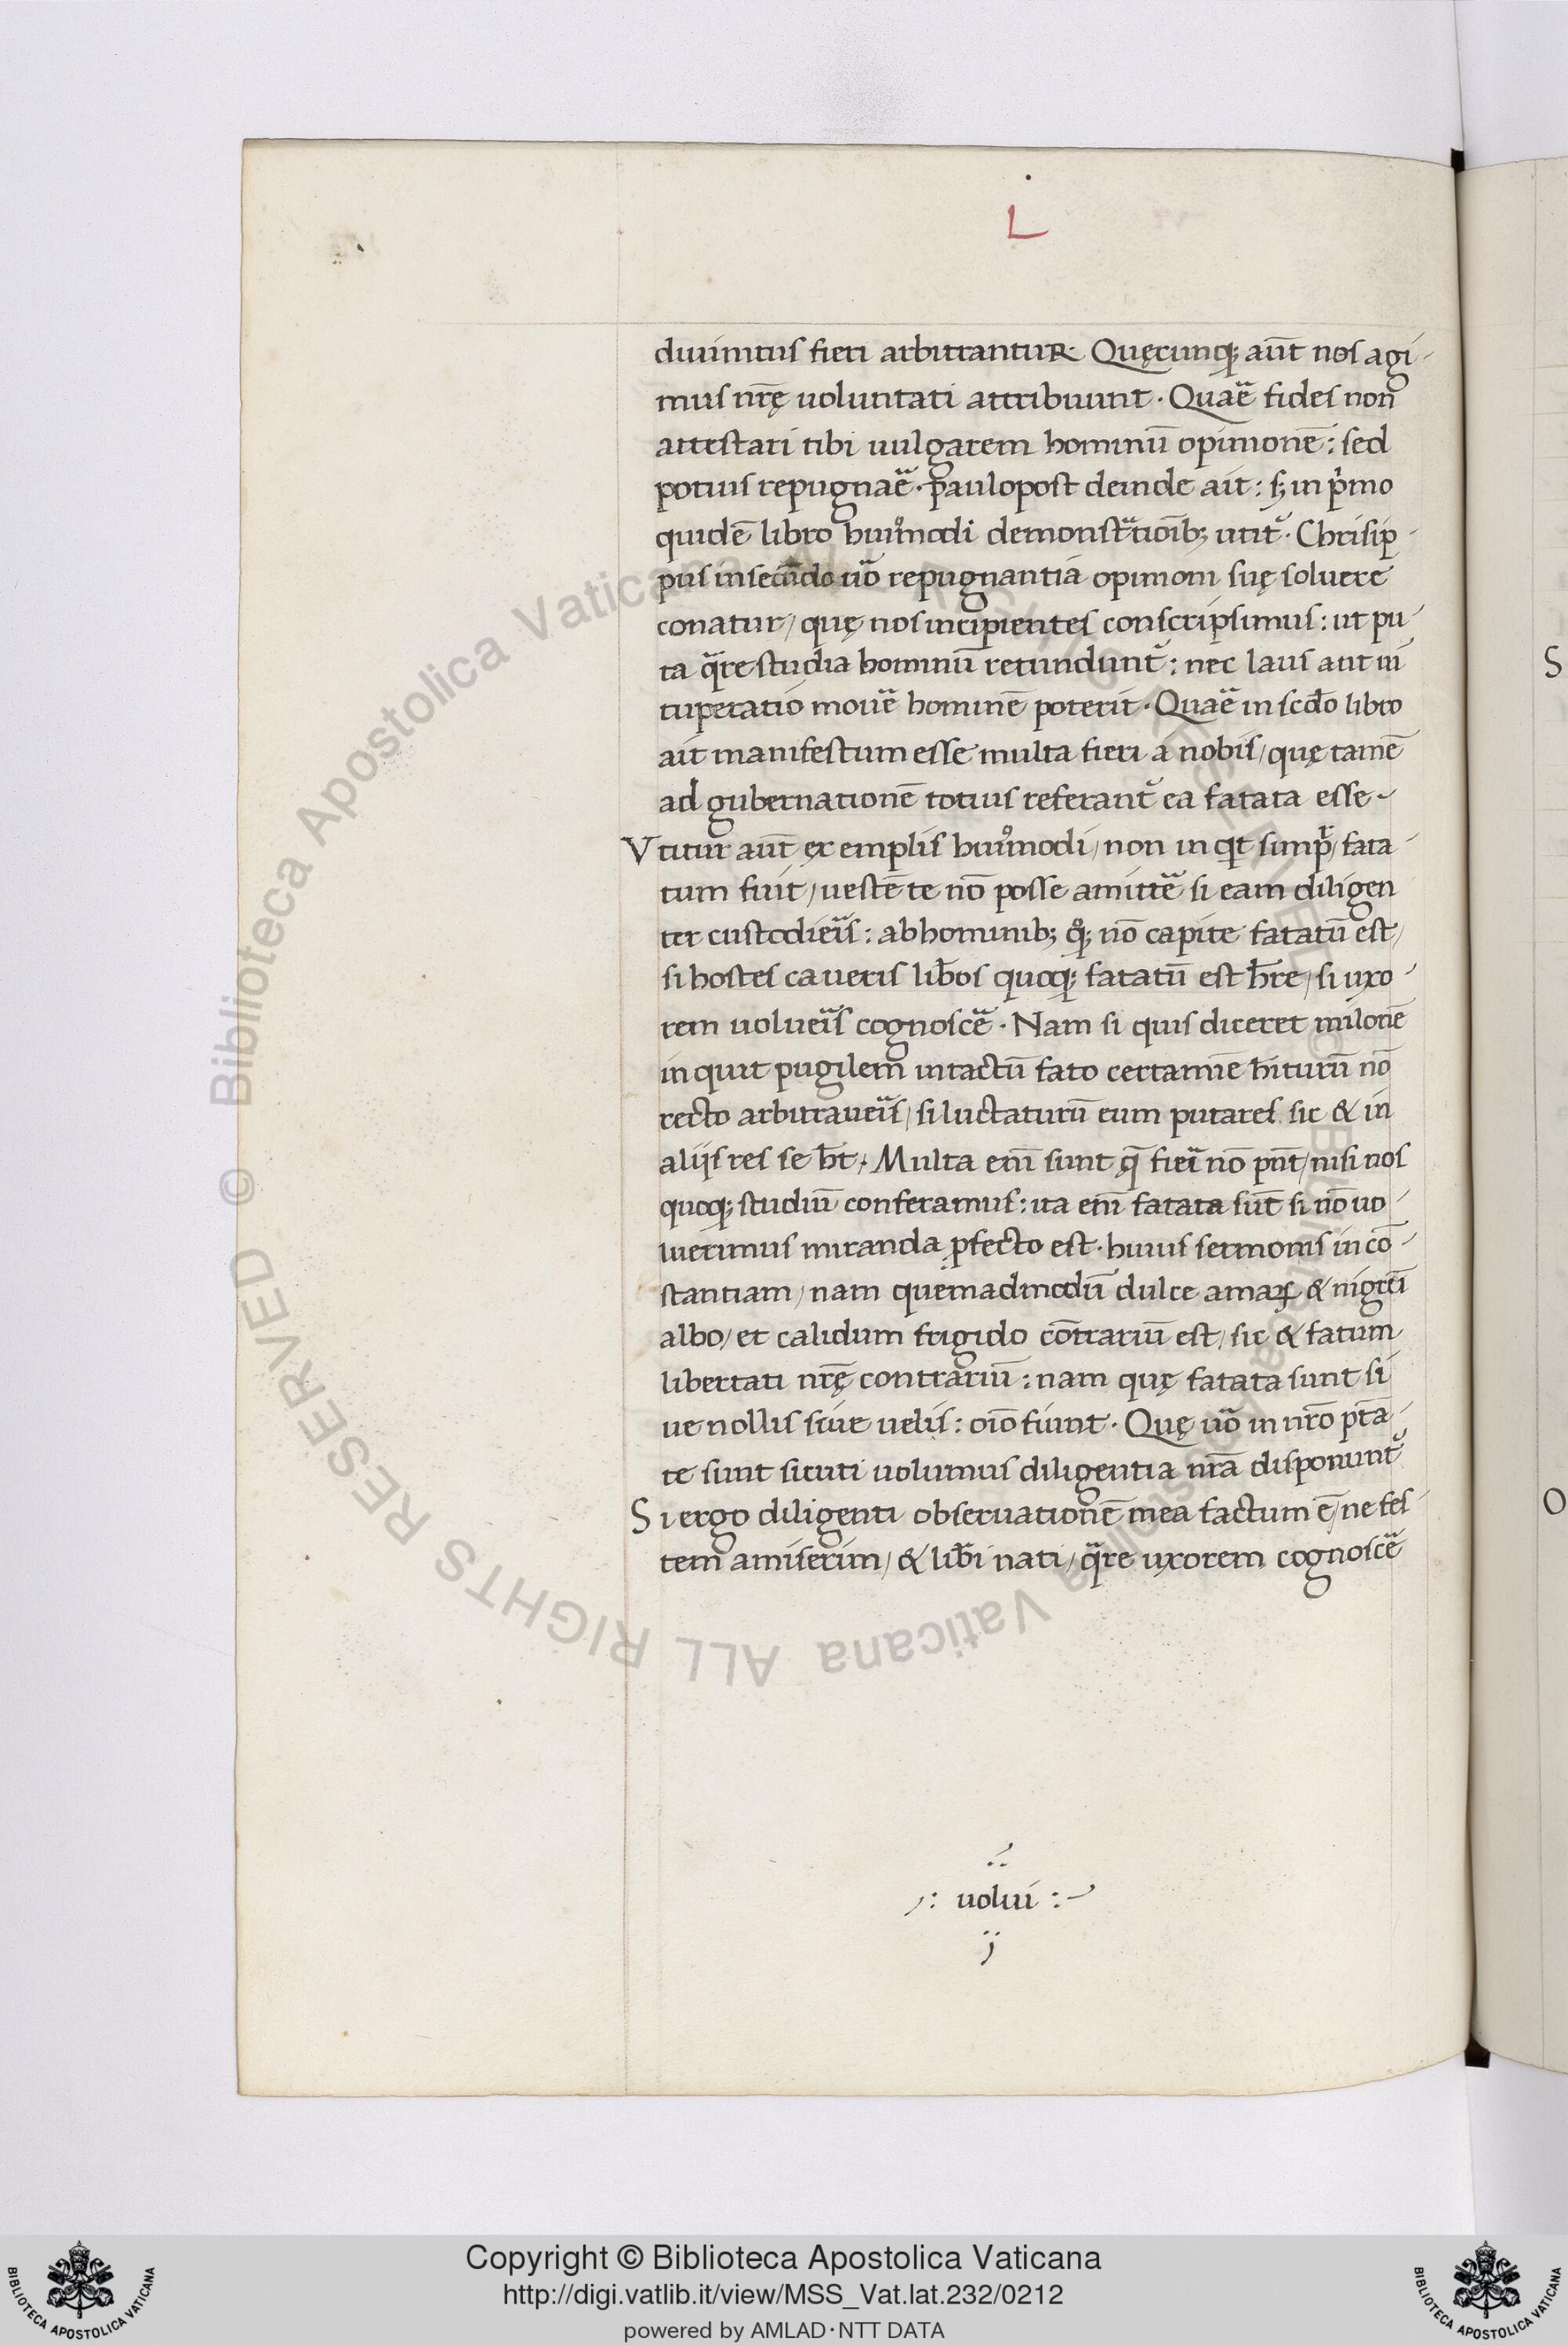 L
diuinitus fieri arbitrantuR. Quęcunq; aūt nos agi-
mus nrę̄ uoluntati attribuunt. Quaē fides non
attestari tibi uulgarem hominū opinionē: sed
potius repugnaē. paulopost deinde ait: s; in pⁱmo
quidē libro huiꝰmodi demonstᵃtioīb; utit᷑. Chrisip-
pus in secūdo uō repugnantiā opinioni suę soluere
conatur/ quę nos incipientes conscripsimus: ut pu-
ta qᵃre studia hominū retundunt᷑: nec laus aut ui
tuperatio mouē hominē poterit. Quaē in scdo libro
ait manifestum esse multa fieri a nobis/ quę tamē
ad gubernationē totius referant᷑ ea fatata esse-
Vtitur aūt ęxemplis huiꝰmodi/ non inqt simpr̄/ fata-
tum fuit/ uestē te nō posse amittē si eam diligen
ter custodieīs: ab hominib; qͦ; nō capite fatatū est/
si hostes caueris lib̄os quoq; fatatū est h̄re/ si uxo-
rem uolueīs cognoscē. Nam si quis diceret milonē
inquit pugilem intactū fato certamīe h̄iturū nō
recto arbitraueīs/ si luctaturū eum putares. sic & in
alijs res se h̄t. Multa enī sunt q̄ fieī nō pn̄t/ nisi nos
quoq; studiū conferamus: ita enī fatata sūt si nō uo-
luerimus miranda ꝓfecto est. huius sermonis in cō-
stantiam/ nam quemadmodū dulce amaꝝ & nigrū
albo/ et calidum frigido cōtrariū est/ sic & fatum
libertati nrę̄ contrariū: nam quę fatata sunt si
ue nollis siue uelis: oīo fiunt. Quę uō in nrō ptā-
te sunt sicuti uolumus diligentia nrā disponunt᷑
Si ergo diligenti obseruationē mea factum ē/ ne fes-
tem amiserim/ & lib̄i nati/ qᵃre uxorem cognoscē
uolui
S
O
© Biblioteca Apostolica Vaticana ALL RIGHTS RESERVED
Copyright © Biblioteca Apostolica Vaticana
http://digi.vatlib.it/view/MSS_Vat.lat.232/0212
powered by AMLAD·NTT DATA
BIBLIOTECA APOSTOLICA VATICANA
BIBLIOTECA APOSTOLICA VATICANA